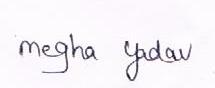 megha yadav